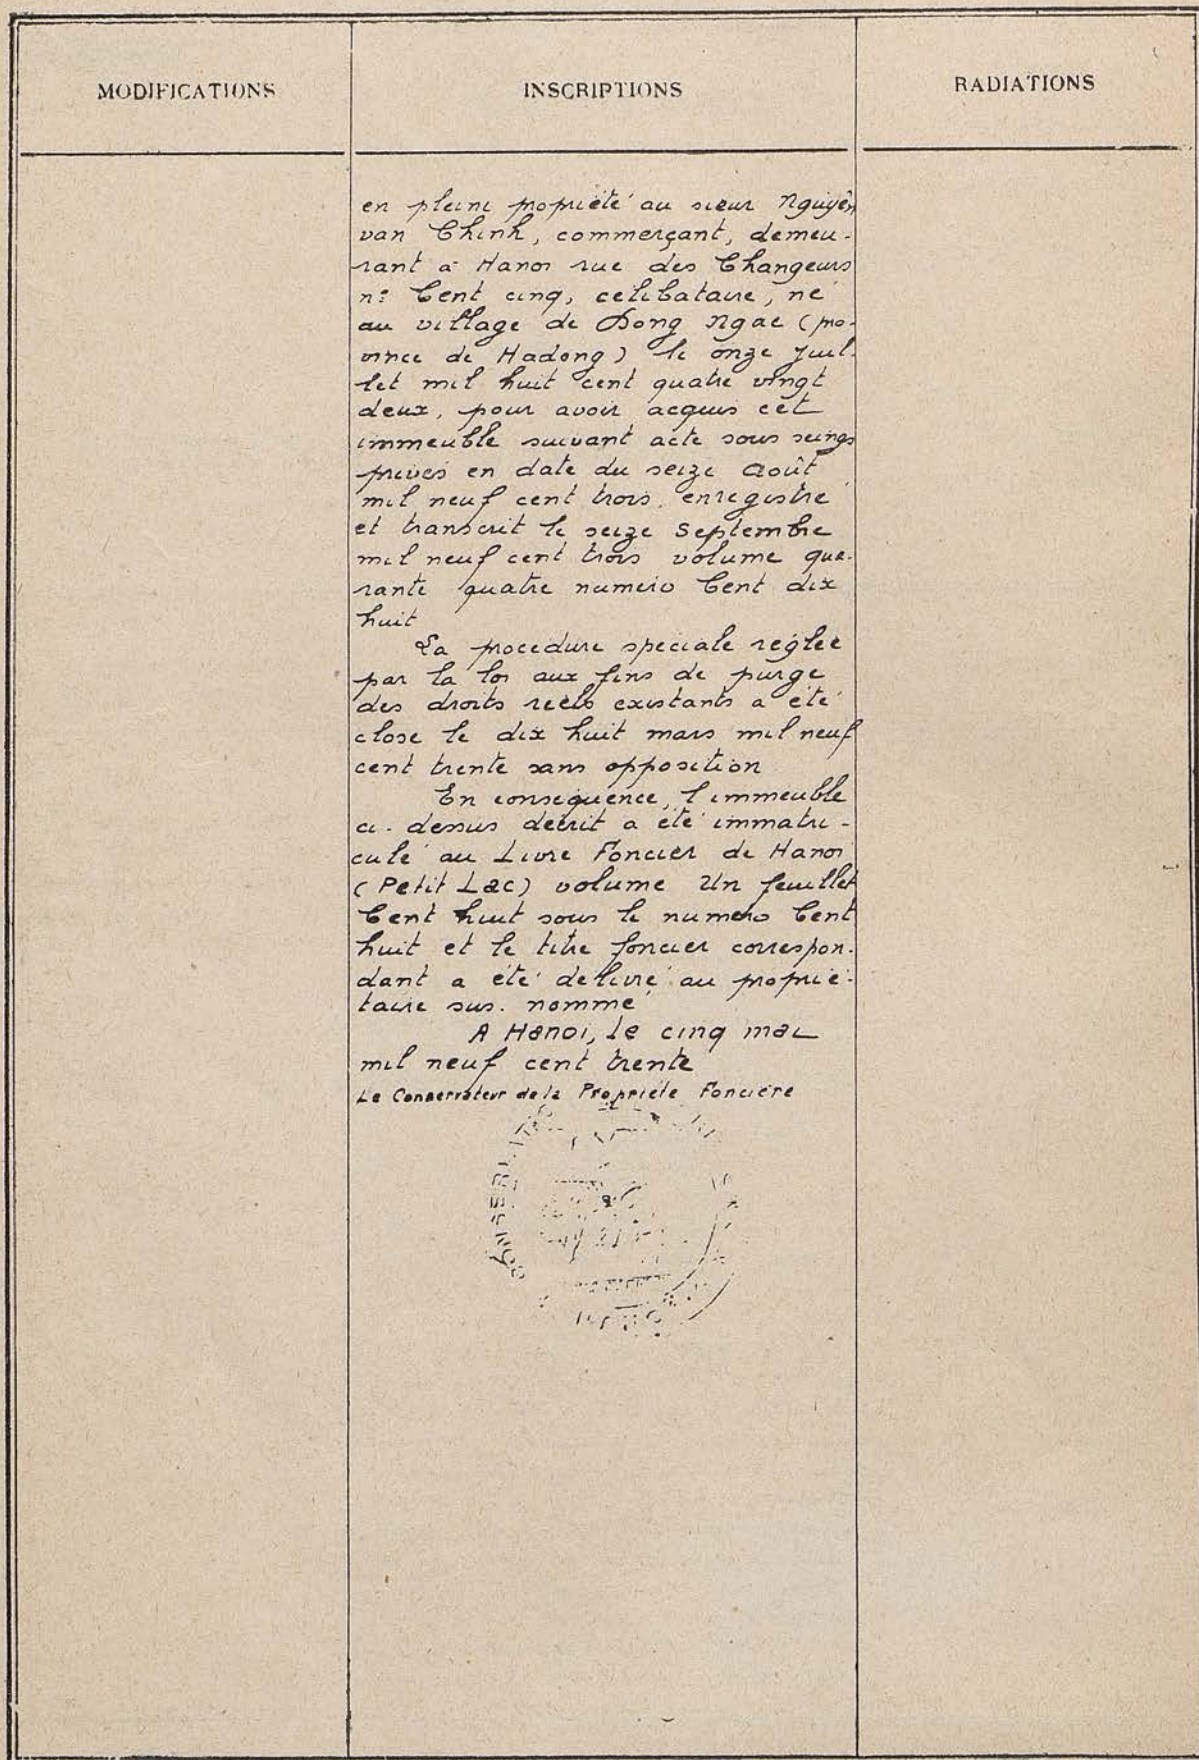 MODIFICATIONS
INSCRIPTIONS
RADIATIONS
en pleine propriété au sieur Nguyên
van Chinh, commerçant, demeu-
rant à Hanoi rue des Changeurs
n° Cent cinq, célibataire, né
au village de Dong Ngac (pro-
vince de Hadong) le onze Juil-
let mil huit cent quatre vingt
deux, pour avoir acquis cet
immeuble suivant acte sous seings
privés en date du seize Août
mil neuf cent trois, enregistré
et transcrit le seize Septembre
mil neuf cent trois volume qua-
rante quatre numéro Cent dix
huit
La procédure spéciale réglée
par la loi aux fins de purge
des droits réels existants a été
close le dix huit mars mil neuf
cent trente sans opposition
En conséquence, l'immeuble
ci-dessus décrit a été immatri-
culé au Livre Foncier de Hanoi
(Petit Lac) volume Un feuillet
Cent huit sous le numéro Cent
huit et le titre foncier correspon-
dant a été délivré au proprié-
taire sus-nommé
A Hanoi, le cinq mai
mil neuf cent trente
Le Conservateur de la Propriété Foncière